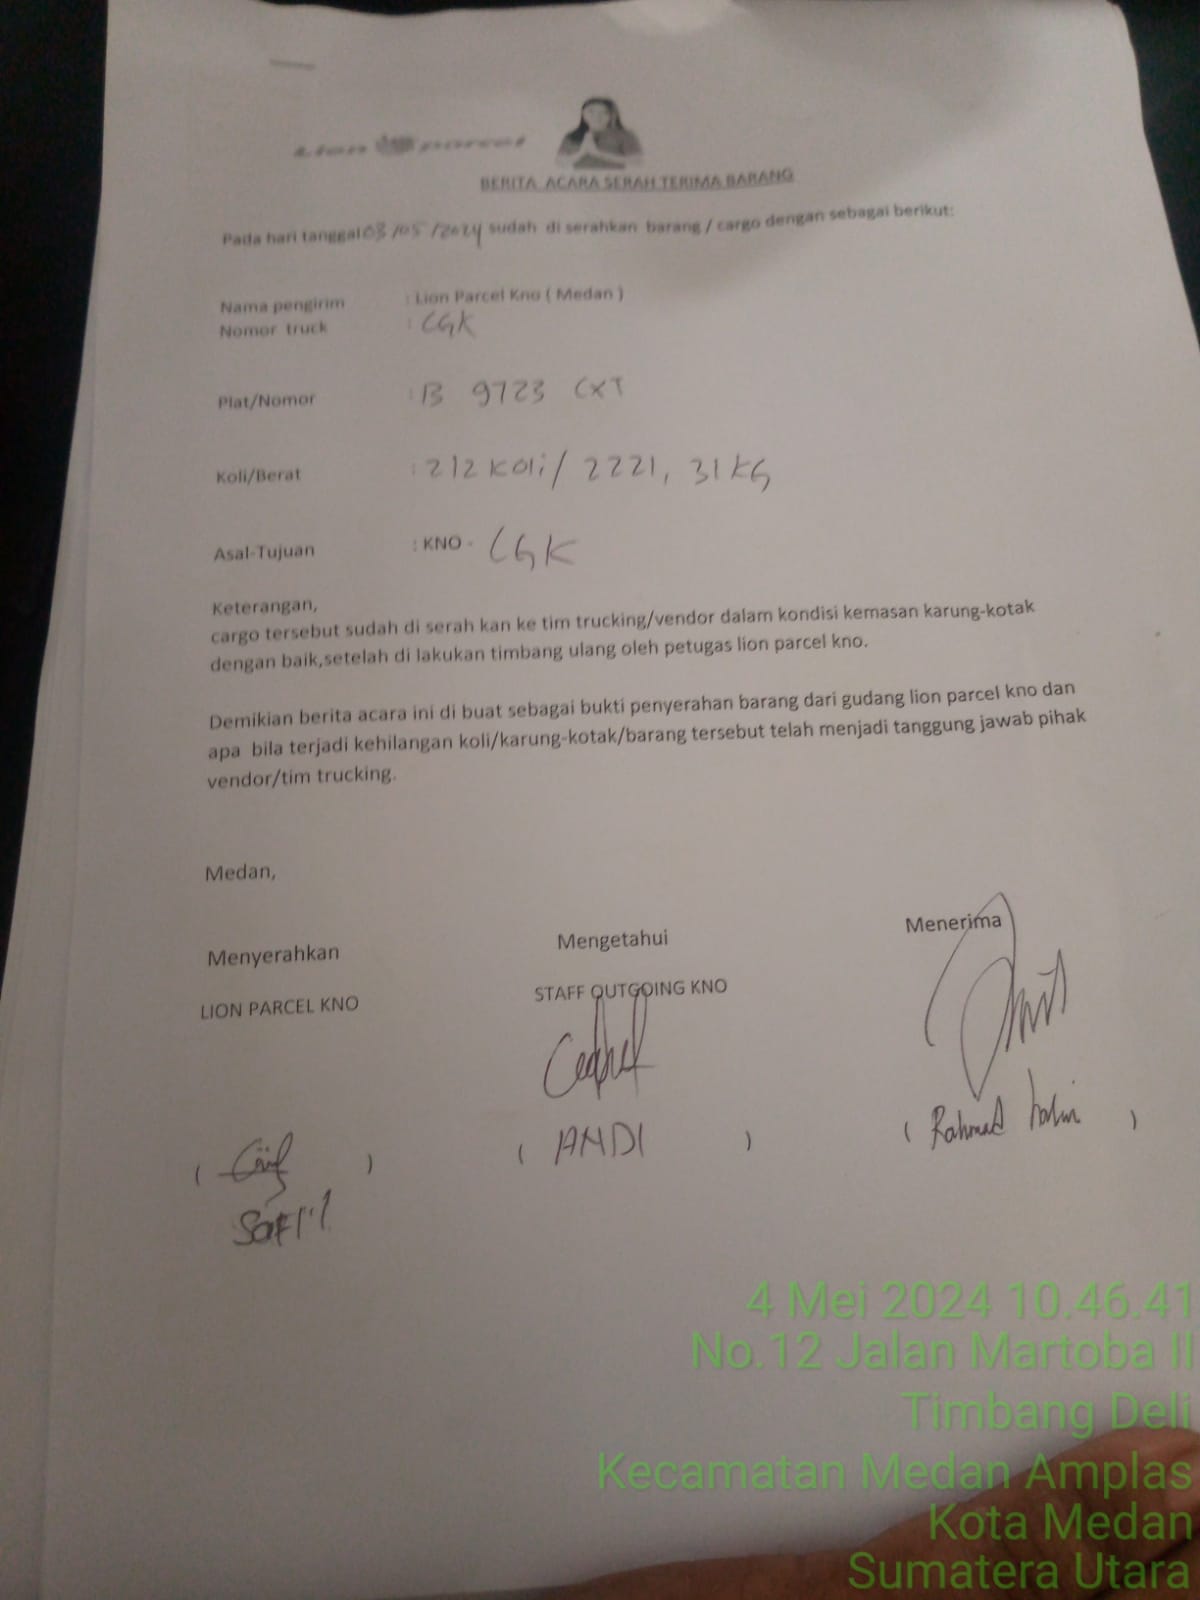 Lion parcel
BERITA ACARA SERAH TERIMA BARANG
Pada hari tanggal 03/05/2024 sudah di serahkan barang / cargo dengan sebagai berikut:
Nama pengirim : Lion Parcel Kno ( Medan )
Nomor truck : CGK
Plat/Nomor : B 9723 CXT
Koli/Berat : 212 Koli / 2221, 31 KG
Asal-Tujuan : KNO - CGK
Keterangan,
cargo tersebut sudah di serah kan ke tim trucking/vendor dalam kondisi kemasan karung-kotak
dengan baik,setelah di lakukan timbang ulang oleh petugas lion parcel kno.
Demikian berita acara ini di buat sebagai bukti penyerahan barang dari gudang lion parcel kno dan
apa bila terjadi kehilangan koli/karung-kotak/barang tersebut telah menjadi tanggung jawab pihak
vendor/tim trucking.
Medan,
Menyerahkan Mengetahui Menerima
LION PARCEL KNO STAFF OUTGOING KNO
( ) ( ANDI ) ( Rahmad )
4 Mei 2024 10.46.41
No.12 Jalan Martoba II
Timbang Deli
Kecamatan Medan Amplas
Kota Medan
Sumatera Utara